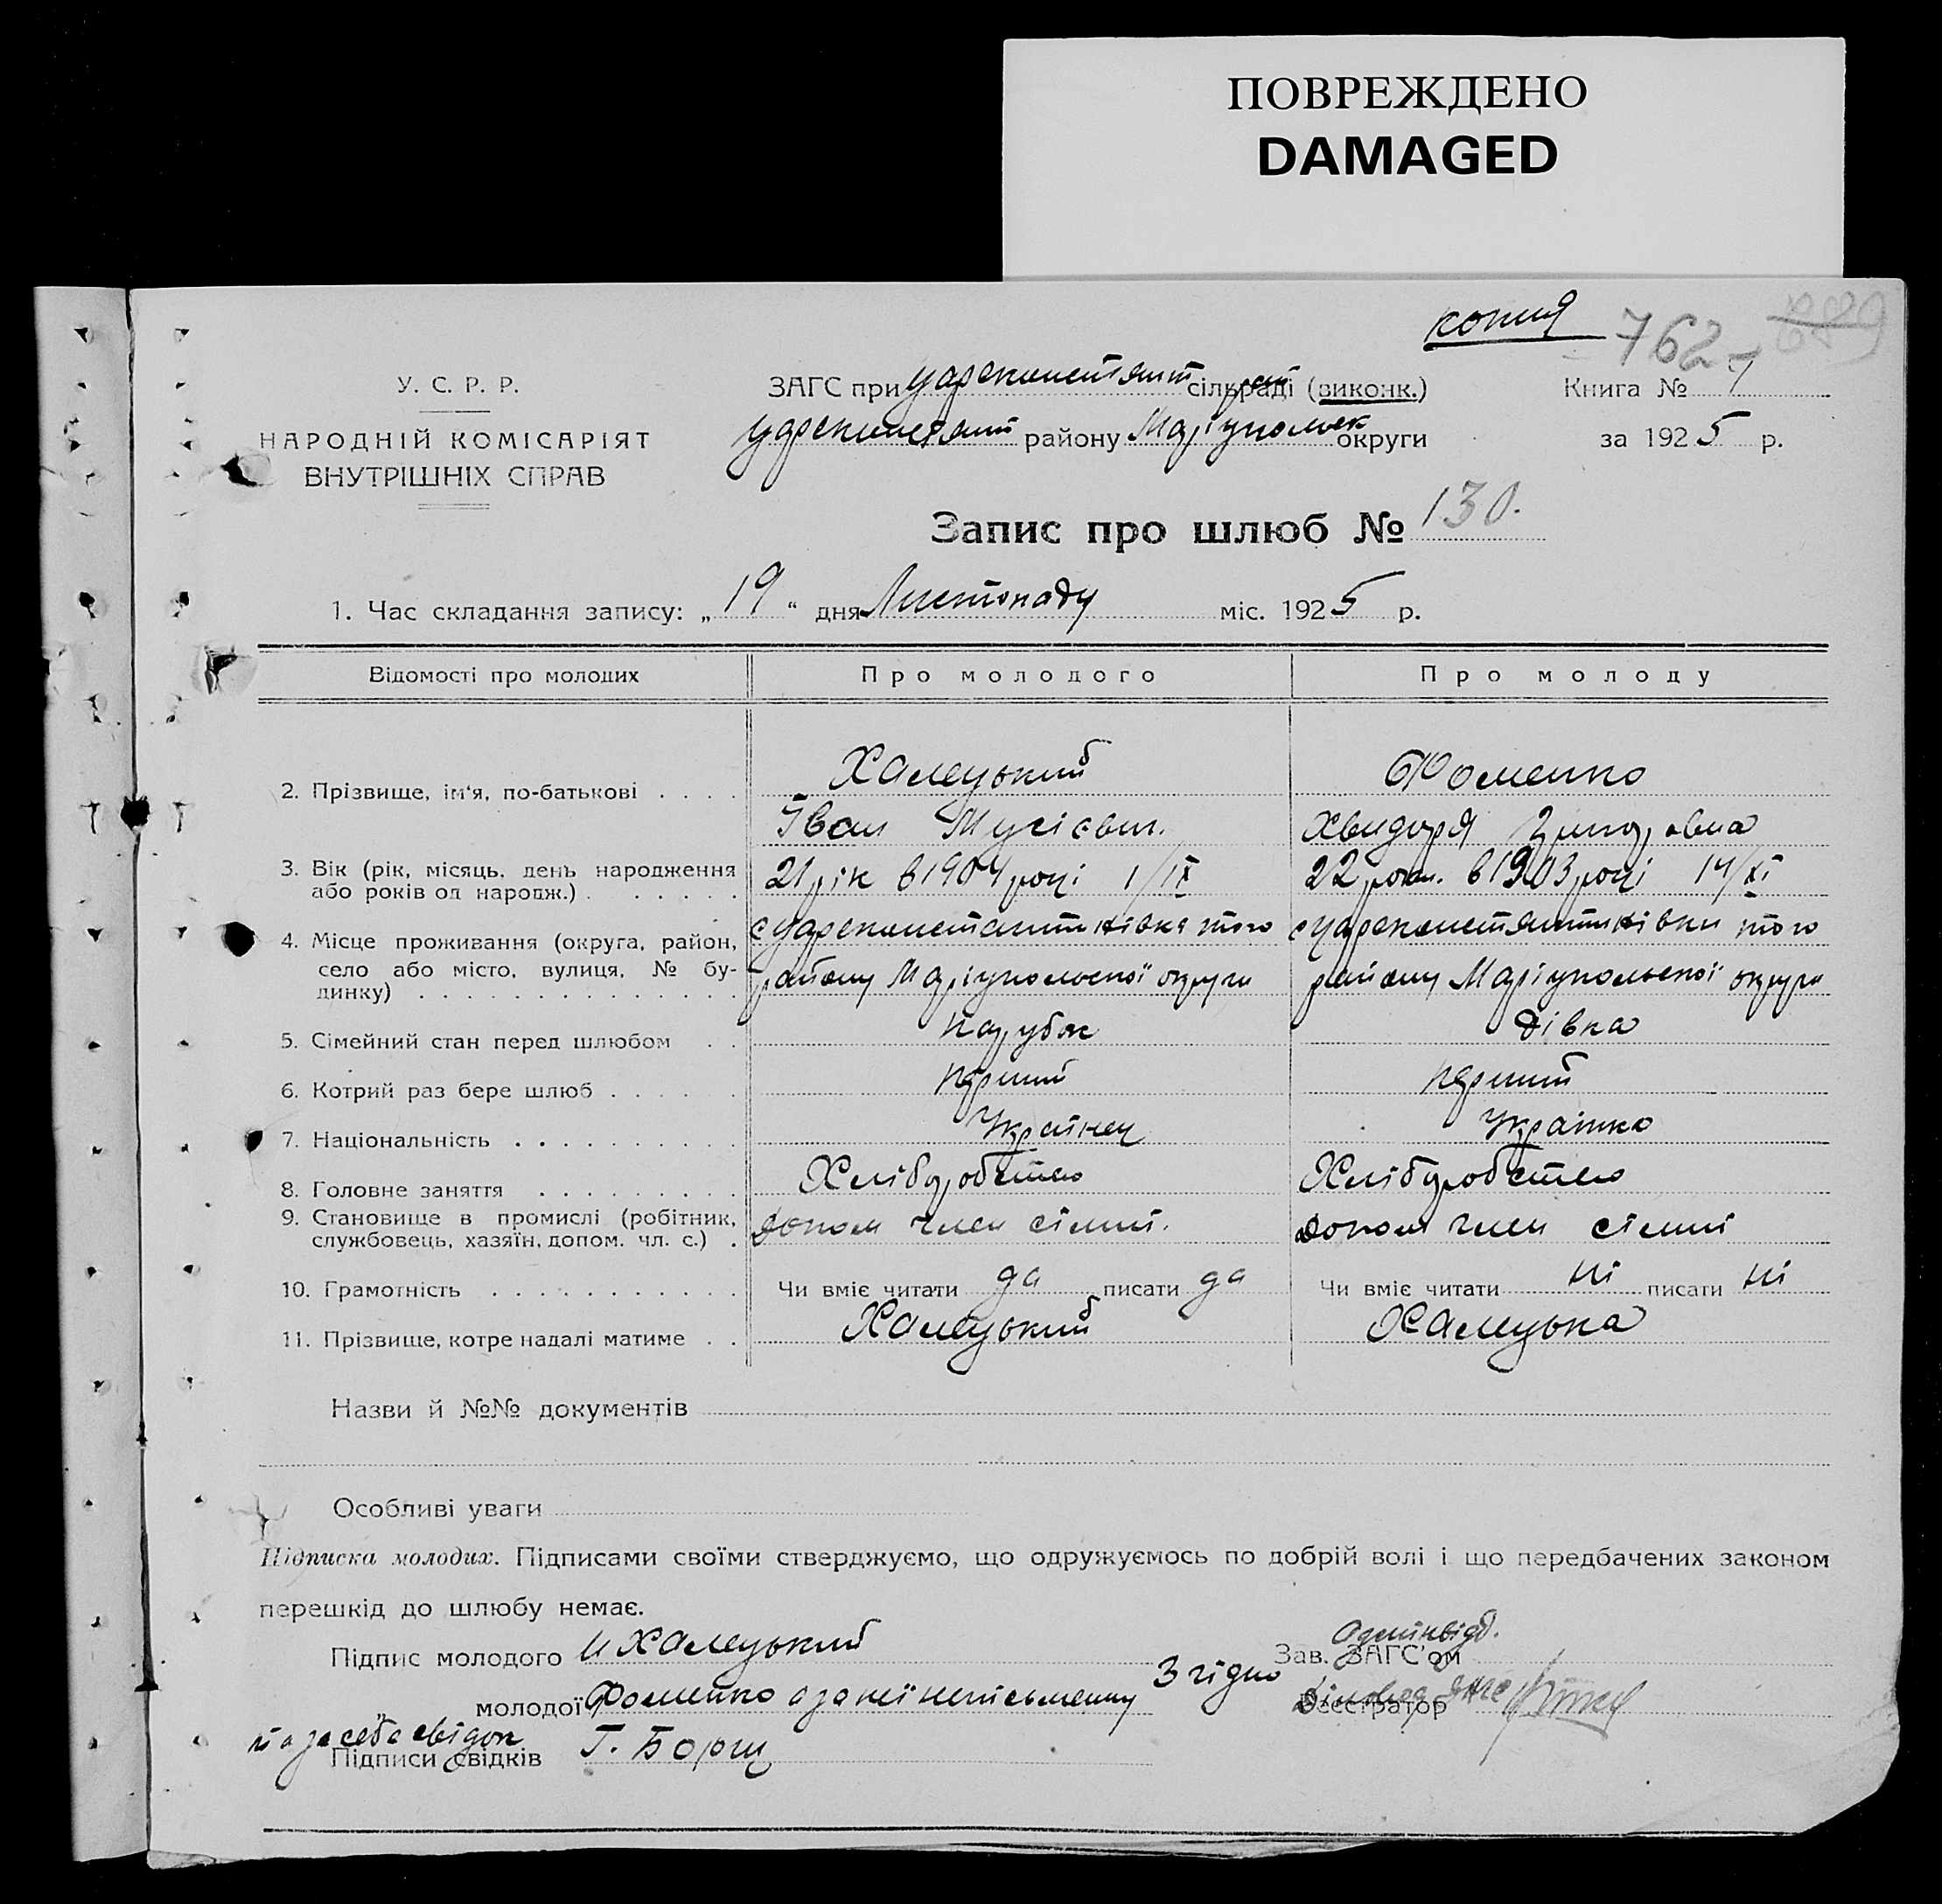 ПОВРЕЖДЕНО
DAMAGED
копия
762
У. С. Р. Р.
НАРОДНІЙ КОМІСАРІЯТ
ВНУТРІШНІХ СПРАВ
ЗАГС при Царсконстянт сільраді (виконк.)
Царсконстянт району Маріупольск округи
Книга № 1
за 1925 р.
Запис про шлюб № 130.
1. Час складання запису: „19“ дня Листопаду міс. 1925 р.
Відомості про молодих
Про молодого
Про молоду
2. Прізвище, ім'я, по-батькові . . . .
Халецький
Фоменко
Іван Мусієвич.
Хвидоря
3. Вік (рік, місяць, день народження або років од народж.) . . . . . .
21 рік в 1904 році 1/IX
22 рок. в 1903 році 14/XI
4. Місце проживання (округа, район, село або місто, вулиця, № будинку) . . . . . . . . . . . . . .
с Царсконстантинівка того
с Царсконстянтинівки того
району Маріупольської округи
району Маріупольської округи
5. Сімейний стан перед шлюбом . .
парубок
дівка
6. Котрий раз бере шлюб . . . . . .
перший
перший
7. Національність . . . . . . . . . .
Українец
Українка
8. Головне заняття . . . . . . . . .
Хліборобство
Хліборобство
9. Становище в промислі (робітник, службовець, хазяїн, допом. чл. с.) .
допом член сімиі.
допом член сімиі
10. Грамотність . . . . . . . . . . .
Чи вміє читати да писати да
Чи вміє читати ні писати ні
11. Прізвище, котре надалі матиме . .
Халецький
Халецька
Назви й №№ документів
Особливі уваги
Підписка молодих. Підписами своїми стверджуємо, що одружуємось по добрій волі і що передбачених законом
перешкід до шлюбу немає.
Підпис молодого И Халецький
Зав. ЗАГС'ом
молодої Фоменко а за неї неписьменну
Згідно
Реєстратор
й за себе свідок
Підписи свідків Г. Борщ